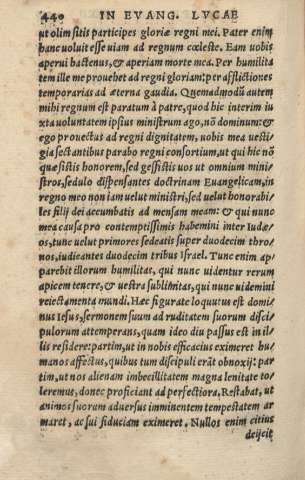 440 IN EVANG. LVCAE
ut olim sitis participes gloriæ regni mei. Pater enim
hanc uoluit esse uiam ad regnum cœleste. Eam uobis
aperui hactenus, & aperiam morte mea. Per humilita
tem ille me prouehet ad regni gloriam: per afflictiones
temporarias ad æterna gaudia. Quemadmodũ autem
mihi regnum est paratum à patre, quod hic interim iu
xta uoluntatem ipsius ministrum ago, nō dominum: &
ego prouectus ad regni dignitatem, uobis mea uesti/
gia sectantibus parabo regni consortium, ut qui hic nō
quæsistis honorem, sed gessistis uos ut omnium mini/
stros, sedulo dispensantes doctrinam Euangelicam, in
regno meo non iam uelut ministri, sed uelut honorabi/
les filij dei accumbatis ad mensam meam: & qui nunc
mea causa pro contemptissimis habemini inter Iudæ/
os, tunc uelut primores sedeatis super duodecim thro/
nos, iudicantes duodecim tribus Israel. Tunc enim ap/
parebit illorum humilitas, qui nunc uidentur rerum
apicem tenere, & uestra sublimitas, qui nunc uidemini
reiectamenta mundi. Hæc figurate loquutus est domi/
nus Iesus, sermonem suum ad ruditatem suorum disci/
pulorum attemperans, quam ideo diu passus est in il/
lis residere: partim, ut in nobis efficacius eximeret hu/
manos affectus, quibus tum discipuli erāt obnoxij: par
tim, ut nos alienam imbecillitatem magna lenitate to/
leremus, donec proficiant ad perfectiora. Restabat, ut
animos suorum aduersus imminentem tempestatem ar
maret, ac sui fiduciam eximeret. Nullos enim citius
deijcit